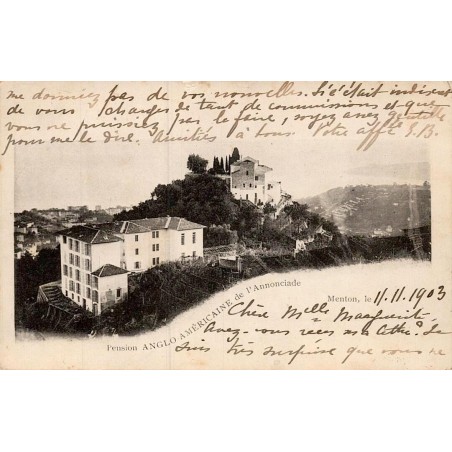 me donniez pas de vos nouvelles. Si c'était indiscret
de vous charger de tant de commissions et que
vous ne puissiez pas le faire, soyez assez gentille
pour me le dire. Amitiés à tous Votre aff.
Pension ANGLO AMÉRICAINE de l'Annonciade
Menton, le 11.11.1903
Chère Mlle Marguerite
Avez-vous reçu ma lettre? Je
suis très surprise que vous ne